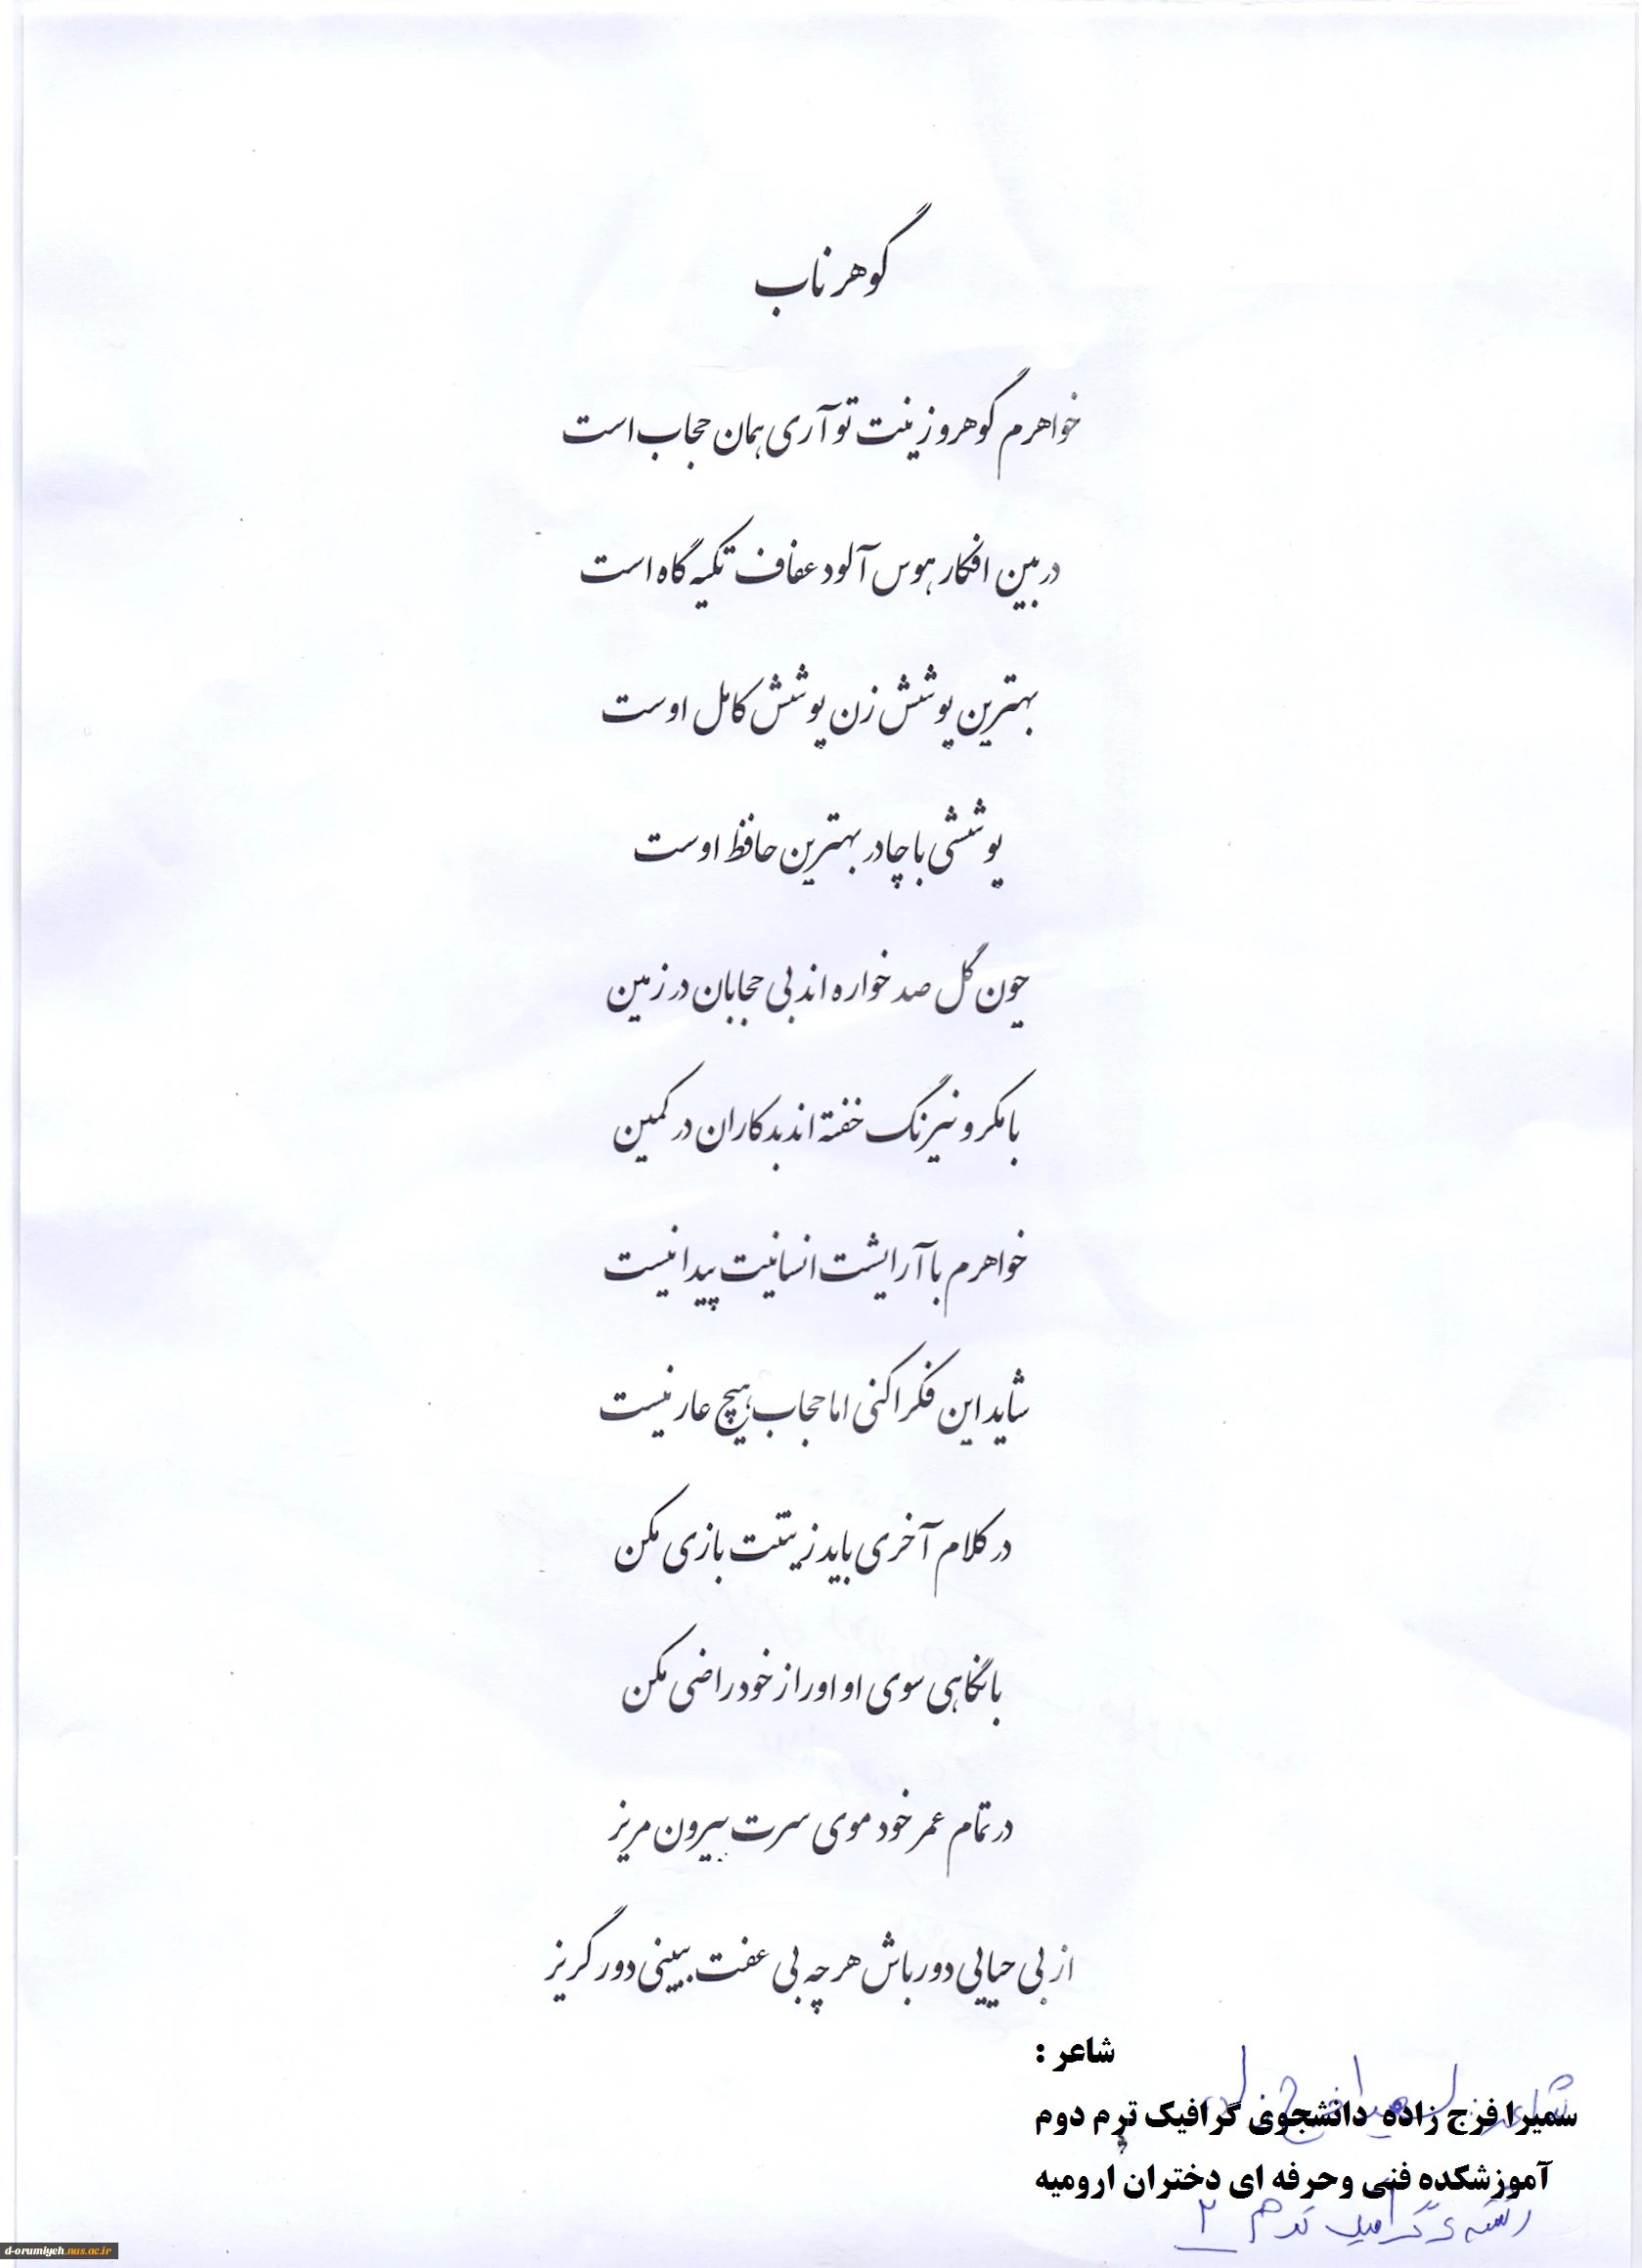 گوهر ناب
خواهرم گوهر و زینت تو آری همان حجاب است
در بین افکار هوس آلود عفاف تکیه گاه است
بهترین پوشش زن پوشش کامل اوست
پوششی با چادر بهترین حافظ اوست
چون گل صد خواره اند بی حجابان در زمین
با مکر و نیرنگ خفته اند بدکاران در کمین
خواهرم با آرایشت انسانیت پیدا نیست
شاید این فکر را کنی اما حجاب هیچ عار نیست
در کلام آخری باید زینتت بازی مکن
با نگاهی سوی او اورا از خود راضی مکن
در تمام عمر خود موی سرت بیرون مریز
از بی حیایی دور باش هر چه بی عفت ببینی دور گریز
شاعر :
سمیرا فرج زاده دانشجوی گرافیک ترم دوم
شاعر: سمیرا فرج زاده
آموزشکده فنی وحرفه ای دختران ارومیه
رشته ی گرافیک ترم ۲
d-orumiyeh.nus.ac.ir